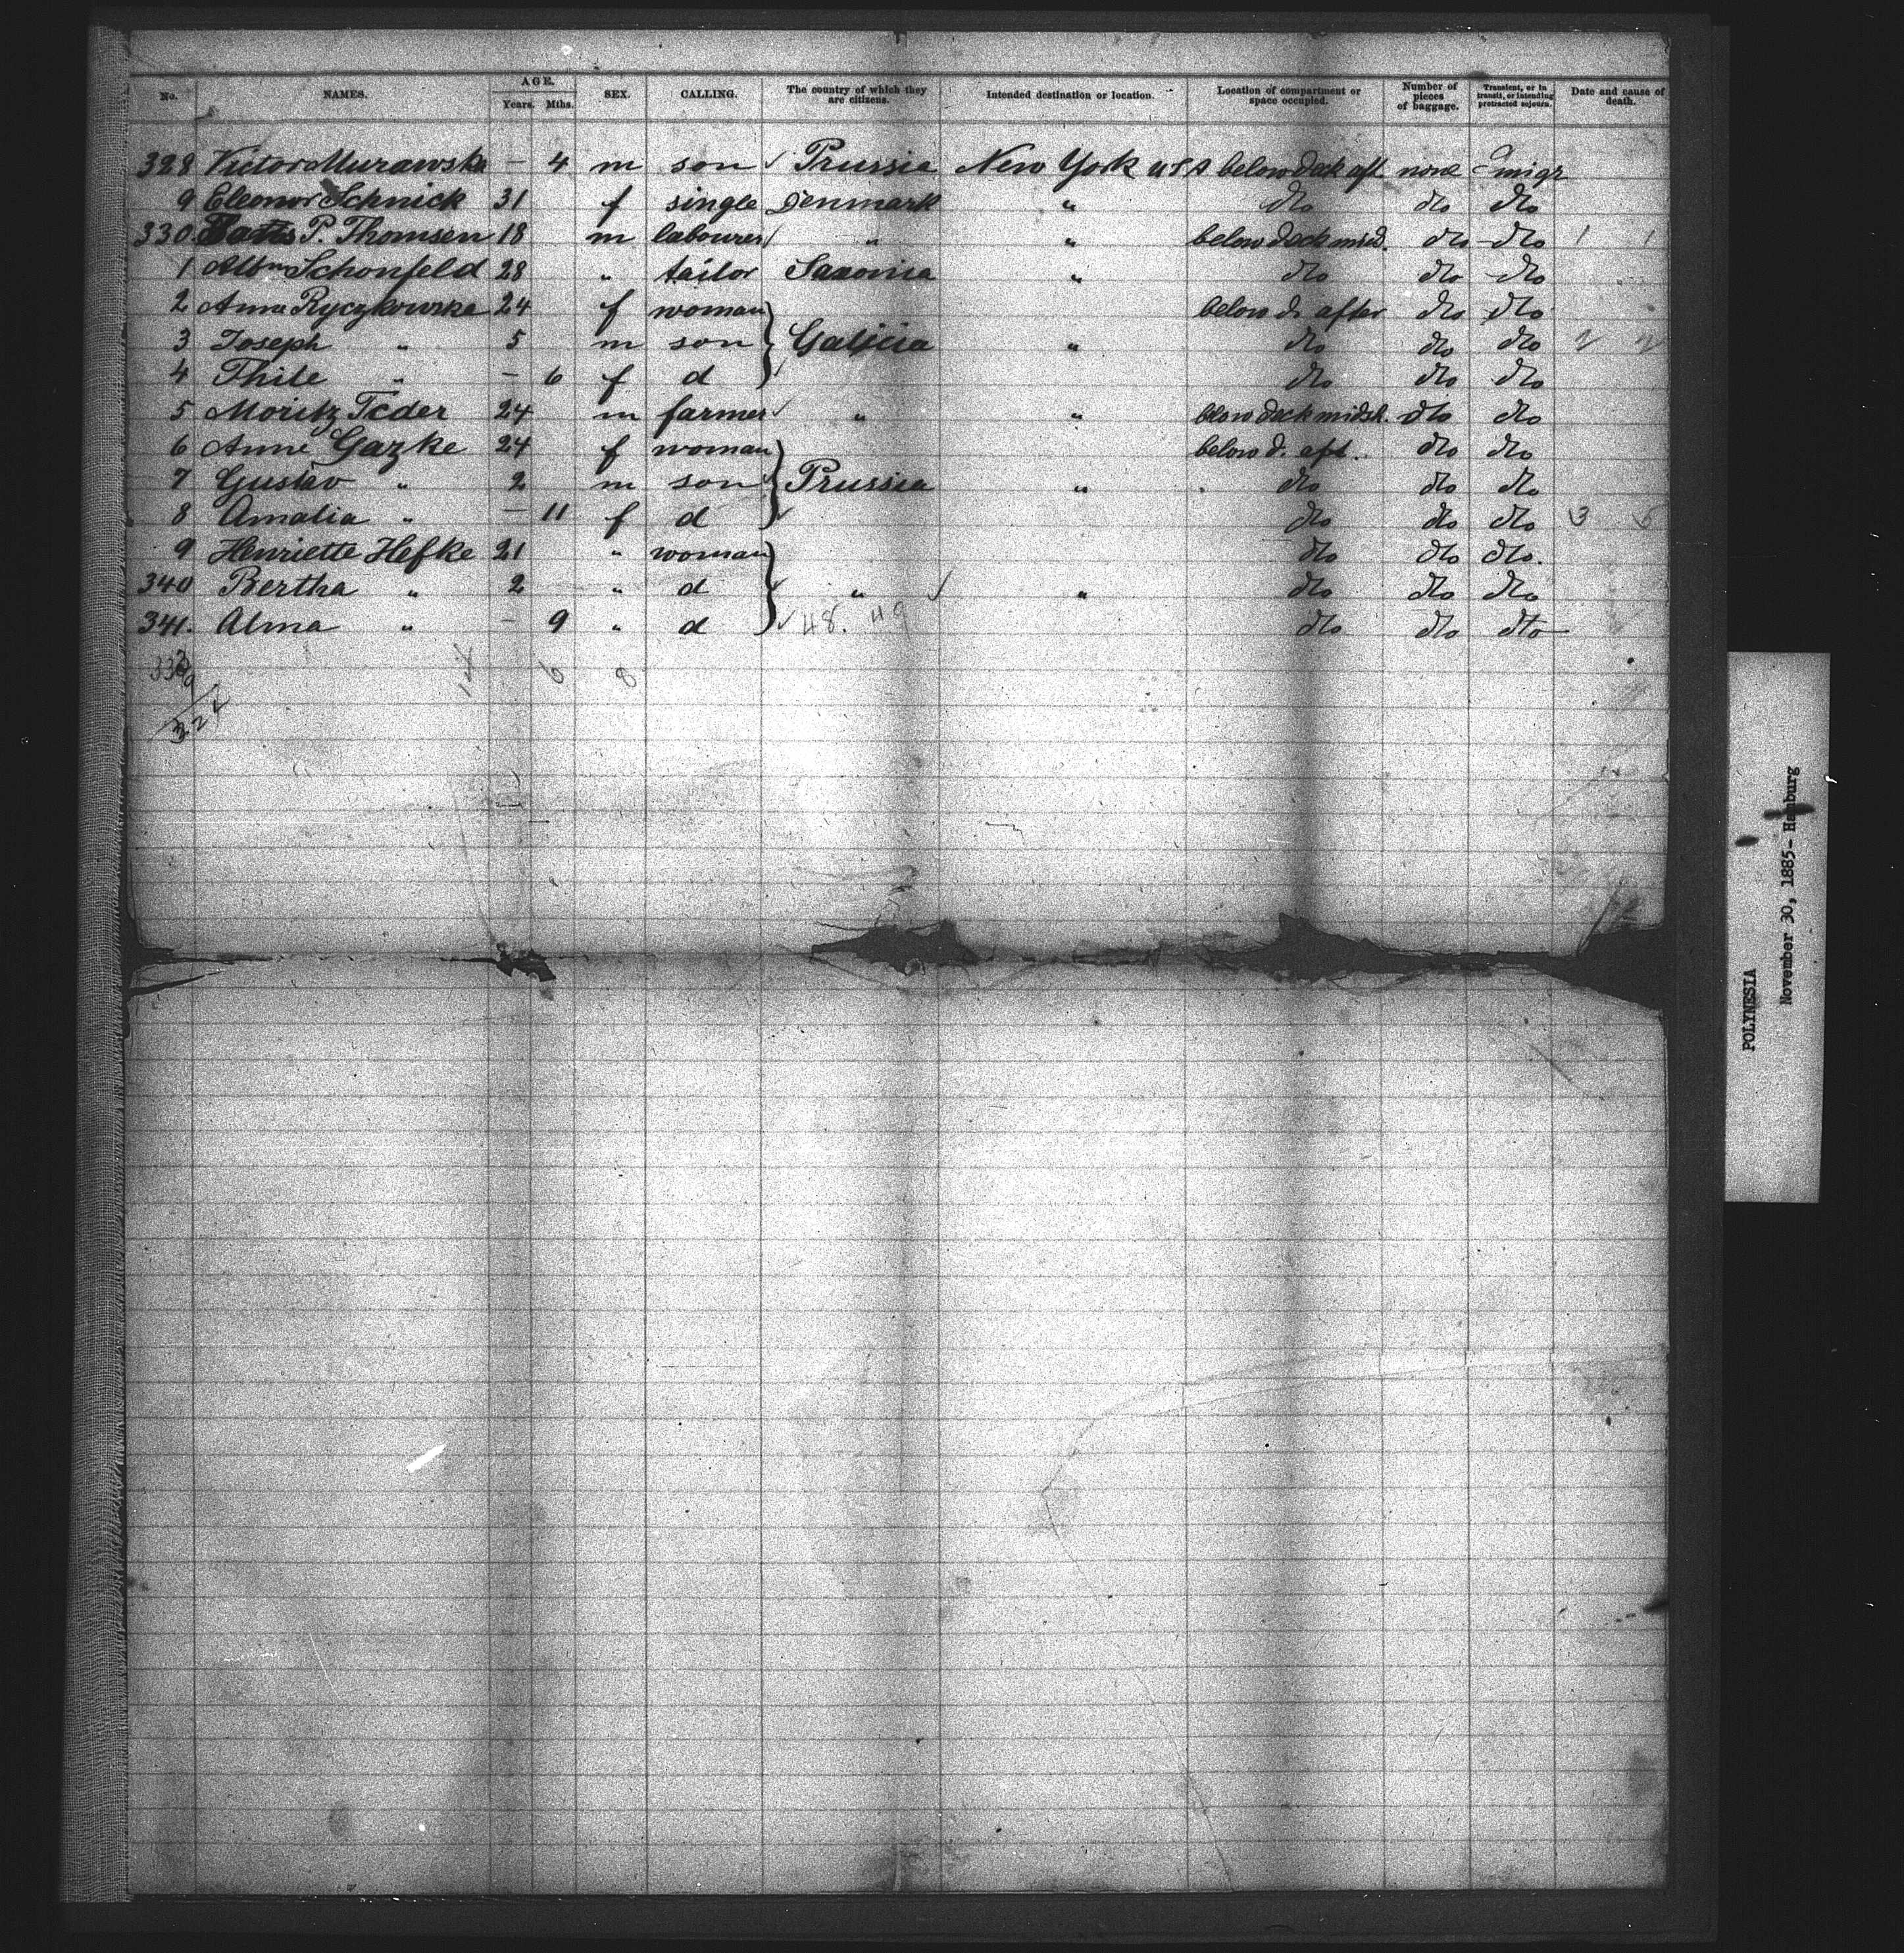 No. NAMES. AGE. Years. Mths. SEX. CALLING. The country of which they are citizens. Intended destination or location. Location of compartment or space occupied. Number of pieces of baggage. Transient, or in transit, or intending protracted sojourn. Date and cause of death.
328 Victor Murawska – 4 m son ✓ Prussia New York USA below deck aft none Emigr
9 Eleonor Schnick 31 f single Denmark " dto dto dto
330 P. Thomsen 18 m labourer ✓ " " below deck mids. dto dto 1 1
1 Schonfeld 28 " tailor Saxonia " dto dto dto
2 Anna Ryczkowska 24 f woman below d. after dto dto
3 Joseph " 5 m son Galicia " dto dto dto 2 2
4 Thile " – 6 f d dto dto dto
5 Moritz Feder 24 m farmer ✓ " " below deck midsh. dto dto
6 Anne Gazke 24 f woman below d. aft. dto dto
7 Gustav " 2 m son Prussia " dto dto dto
8 Amalia " – 11 f d dto dto dto 3 5
9 Henriette Hefke 21 " woman dto dto dto.
340 Bertha " 2 " d ✓ " ✓ " dto dto dto
341. Alma " – 9 " d ✓ 48. 49 dto dto dto
6 8
POLYNESIA
November 30, 1885- Hamburg